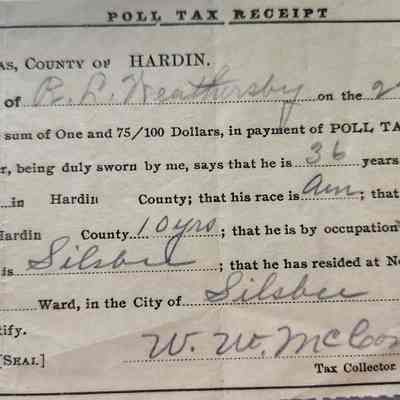 POLL TAX RECEIPT
AS, COUNTY OF HARDIN.
of R. L. Weathersby on the 2
sum of One and 75/100 Dollars, in payment of POLL TA
r, being duly sworn by me, says that he is 36 years
in Hardin County; that his race is Am; that
Hardin County 10 yrs; that he is by occupation
is Silsbee; that he resided at No
Ward, in the City of Silsbee
tify.
W. W. McCo
[SEAL]
Tax Collector